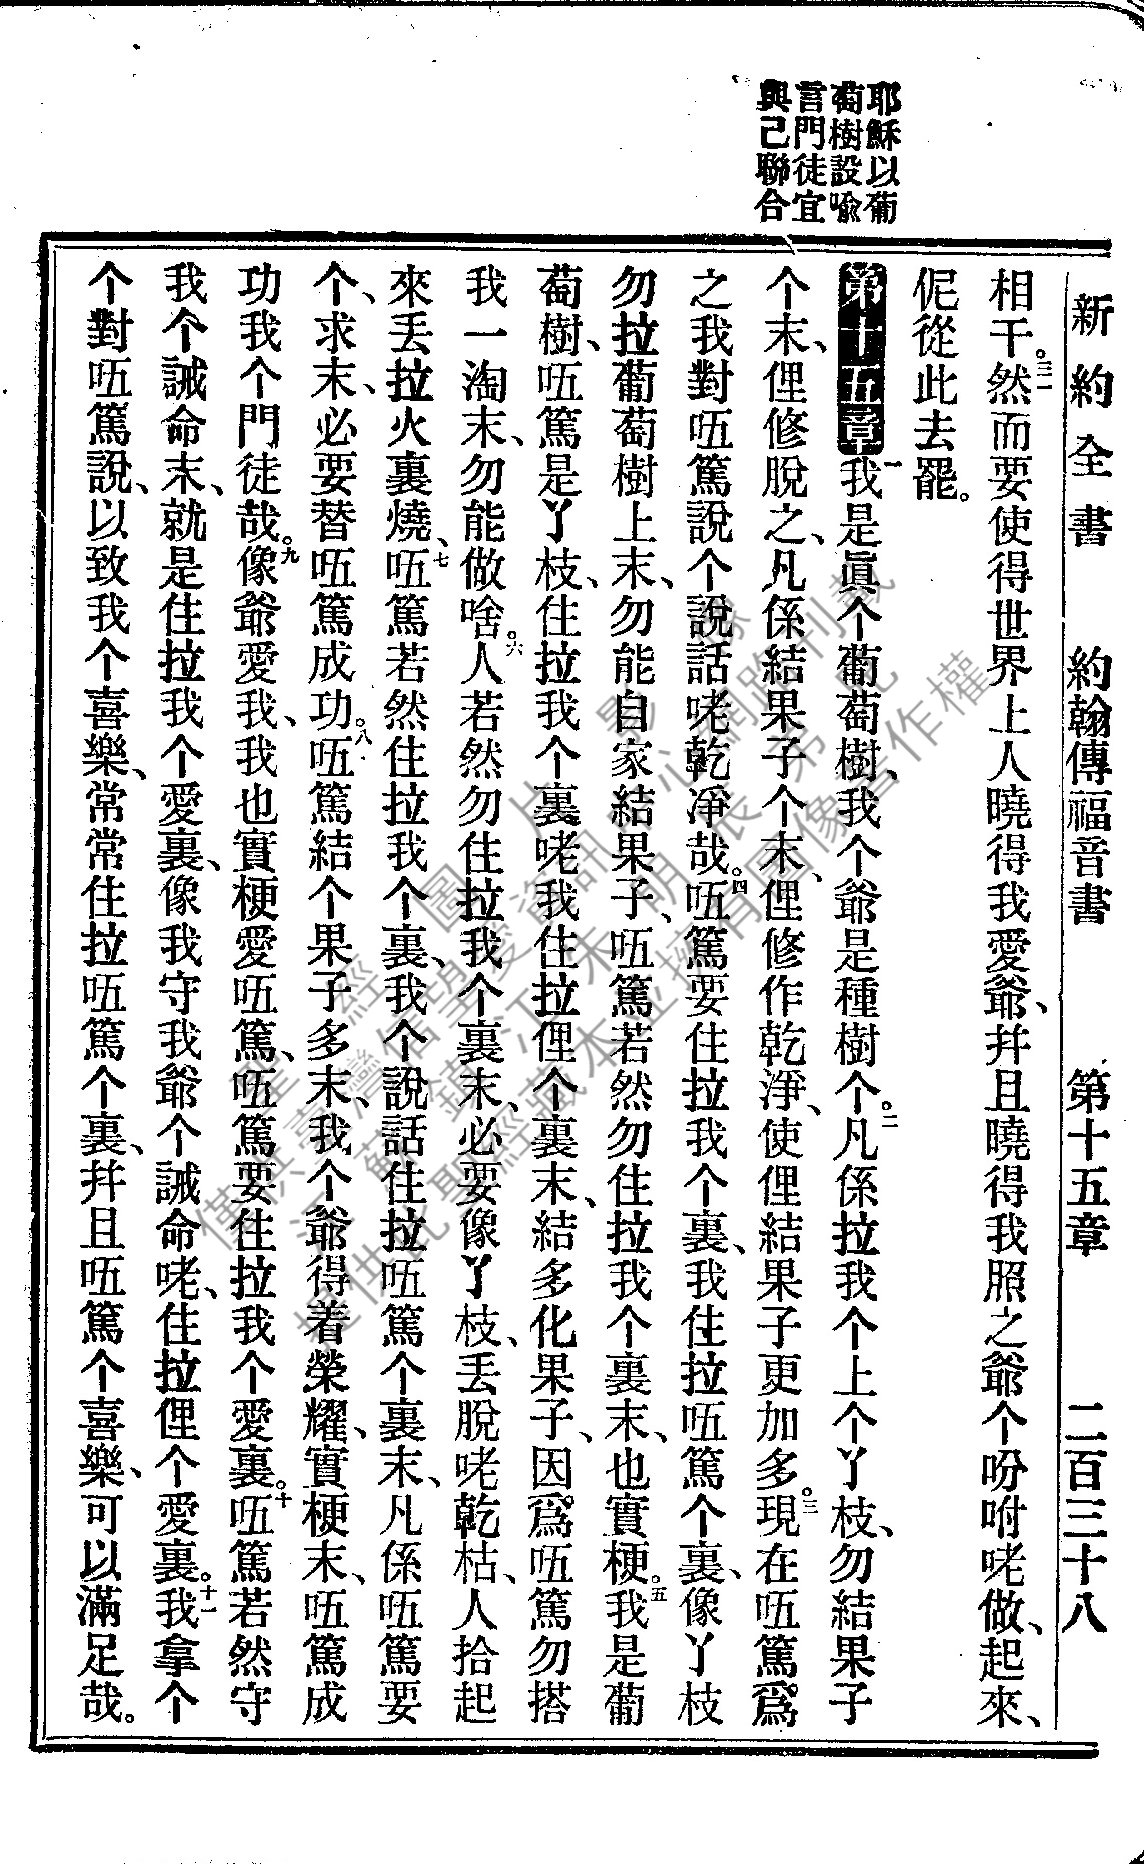 新約全書　約翰傳福音書　第十五章　二百三十八
耶穌以葡
萄樹設喩
言門徒宜
與己聯合
相干。三一然而要使得世界上人曉得我愛爺、幷且曉得我照之爺个吩咐咾做、起來、
伲從此去罷。
第十五章一我是眞个葡萄樹、我个爺是種樹个。二凡係拉我个上个丫枝、勿結果子
个末、俚修脫之、凡係結果子个末、俚修作乾淨、使俚結果子更加多。三現在㕶篤爲
之我對㕶篤說个說話咾乾淨哉。四㕶篤要住拉我个裏、我住拉㕶篤个裏、像丫枝
勿拉葡萄樹上末、勿能自家結果子、㕶篤若然勿住拉我个裏末、也實梗。五我是葡
萄樹、㕶篤是丫枝、住拉我个裏咾我住拉俚个裏末、結多化果子、因爲㕶篤勿搭
我一淘末、勿能做啥。六人若然勿住拉我个裏末、必要像丫枝、丟脫咾乾枯、人拾起
來丟拉火裏燒、七㕶篤若然住拉我个裏、我个說話住拉㕶篤个裏末、凡係㕶篤要
个、求末、必要替㕶篤成功。八㕶篤結个果子多末、我个爺得着榮耀、實梗末、㕶篤成
功我个門徒哉。九像爺愛我、我也實梗愛㕶篤、㕶篤要住拉我个愛裏。十㕶篤若然守
我个誡命末、就是住拉我个愛裏、像我守我爺个誡命咾、住拉俚个愛裏。十一我拿个
个對㕶篤說、以致我个喜樂、常常住拉㕶篤个裏、幷且㕶篤个喜樂、可以滿足哉。